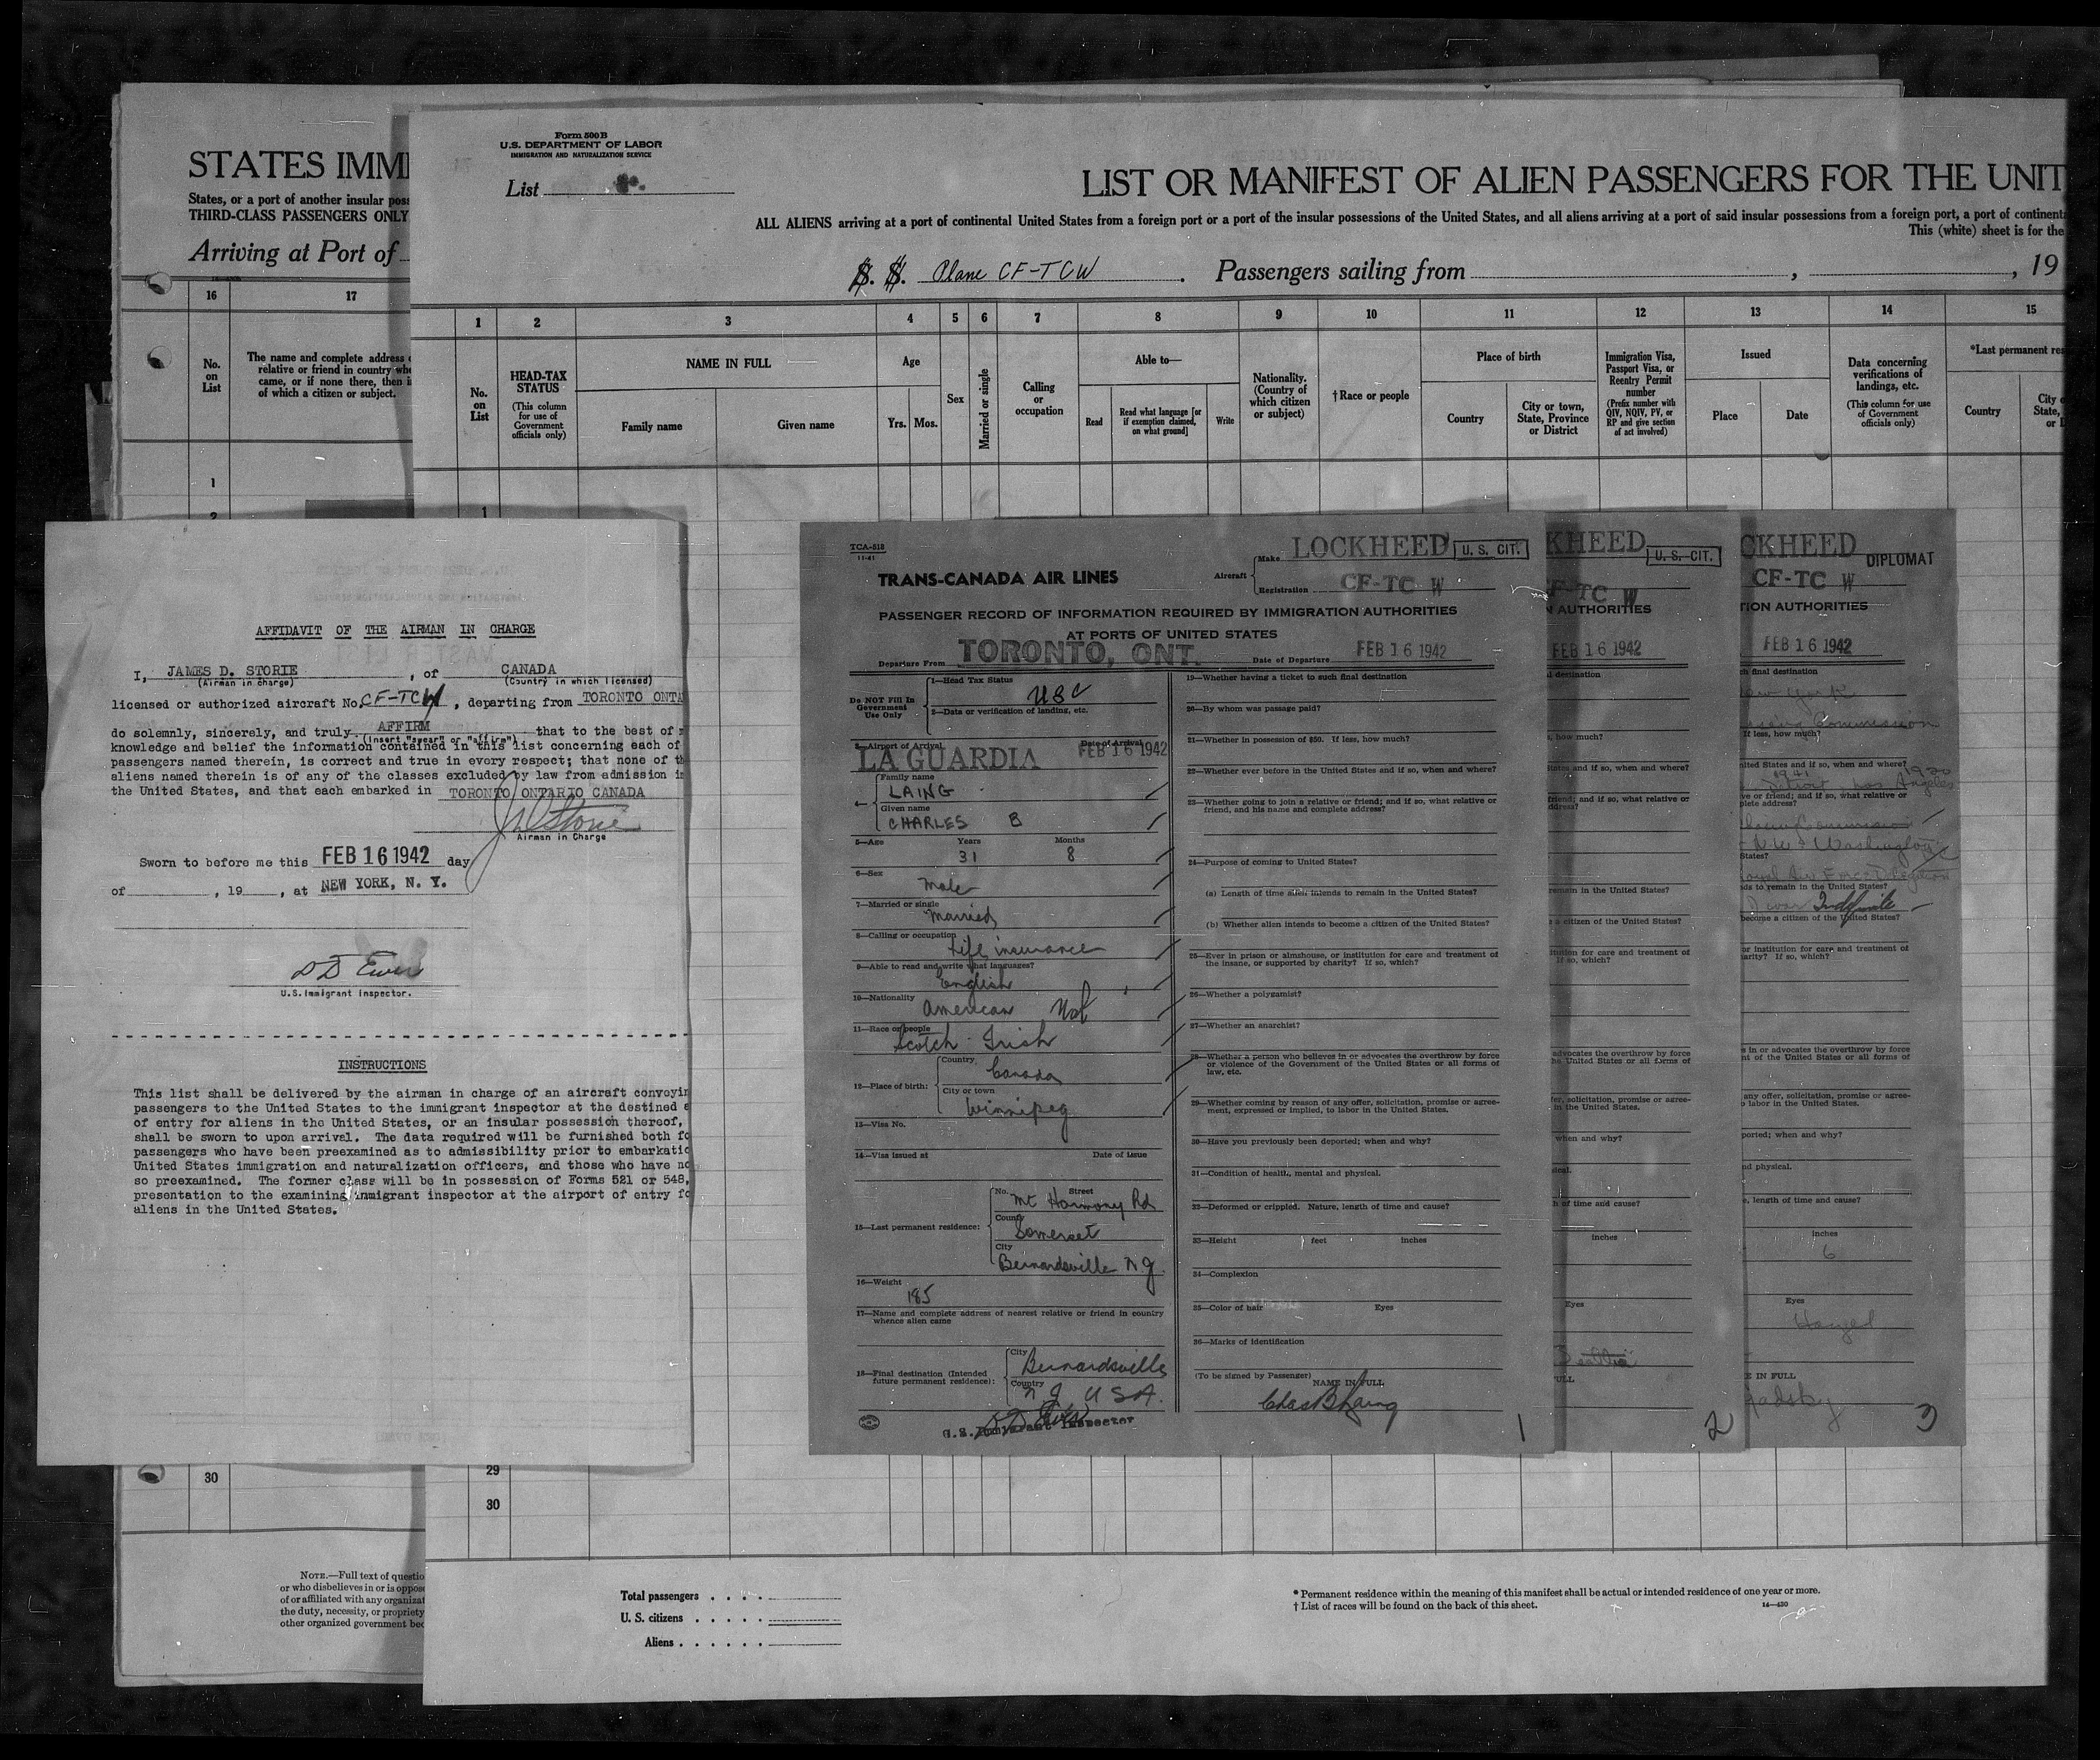 STATES IMMI
States, or a port of another insular poss
THIRD-CLASS PASSENGERS ONLY
Arriving at Port of
16 17
No. on List
The name and complete address o
relative or friend in country whe
came, or if none there, then i
of which a citizen or subject.
1
2
30
NOTE.—Full text of questio
or who disbelieves in or is oppose
of or affiliated with any organizat
the duty, necessity, or propriety
other organized government bec
Form 500B
U.S. DEPARTMENT OF LABOR
IMMIGRATION AND NATURALIZATION SERVICE
List
LIST OR MANIFEST OF ALIEN PASSENGERS FOR THE UNIT
ALL ALIENS arriving at a port of continental United States from a foreign port or a port of the insular possessions of the United States, and all aliens arriving at a port of said insular possessions from a foreign port, a port of continent
This (white) sheet is for the
S. S. Plane CF-TCW. Passengers sailing from , , 19
1 2 3 4 5 6 7 8 9 10 11 12 13 14 15
No. on List
HEAD-TAX STATUS
(This column for use of Government officials only)
NAME IN FULL
Family name Given name
Age
Yrs. Mos.
Sex
Married or single
Calling or occupation
Able to—
Read
Read what language [or if exemption claimed, on what ground]
Write
Nationality. (Country of which citizen or subject)
†Race or people
Place of birth
Country
City or town, State, Province or District
Immigration Visa, Passport Visa, or Reentry Permit number
(Prefix number with QIV, NQIV, PV, or RP and give section of act involved)
Issued
Place Date
Data concerning verifications of landings, etc.
(This column for use of Government officials only)
*Last permanent res
Country
City o
State,
or D
1
29
30
Total passengers . . . .
U. S. citizens . . . . .
Aliens . . . . . .
* Permanent residence within the meaning of this manifest shall be actual or intended residence of one year or more.
† List of races will be found on the back of this sheet.
14—430
AFFIDAVIT OF THE AIRMAN IN CHARGE
I, JAMES D. STORIE, of CANADA
(Airman in charge) (Country in which licensed)
licensed or authorized aircraft No. CF-TCW, departing from TORONTO ONTA
do solemnly, sincerely, and truly AFFIRM that to the best of
(Insert "swear" or "affirm")
knowledge and belief the information contained in this list concerning each of
passengers named therein, is correct and true in every respect; that none of th
aliens named therein is of any of the classes excluded by law from admission in
the United States, and that each embarked in TORONTO ONTARIO CANADA
JDStorie
Airman in Charge
Sworn to before me this FEB 16 1942 day
of , 19 , at NEW YORK, N. Y.
D D Ewen
U.S. Immigrant Inspector.
INSTRUCTIONS
This list shall be delivered by the airman in charge of an aircraft conveyin
passengers to the United States to the immigrant inspector at the destined
of entry for aliens in the United States, or an insular possession thereof,
shall be sworn to upon arrival. The data required will be furnished both fo
passengers who have been preexamined as to admissibility prior to embarkatio
United States immigration and naturalization officers, and those who have no
so preexamined. The former class will be in possession of Forms 521 or 548,
presentation to the examining immigrant inspector at the airport of entry fo
aliens in the United States.
TCA-518
11-41
TRANS-CANADA AIR LINES
Aircraft
Make LOCKHEED U. S. CIT.
Registration CF-TC W
PASSENGER RECORD OF INFORMATION REQUIRED BY IMMIGRATION AUTHORITIES
AT PORTS OF UNITED STATES
Departure From TORONTO, ONT. Date of Departure FEB 16 1942
Do NOT Fill In Government Use Only
1—Head Tax Status USC
2—Data or verification of landing, etc.
3—Airport of Arrival LA GUARDIA Date of Arrival FEB 16 1942
4—
Family name
LAING
Given name
CHARLES B
5—Age Years Months
31 8
6—Sex
Male
7—Married or single
Married
8—Calling or occupation
Life insurance
9—Able to read and write what languages?
English
10—Nationality
American Nat
11—Race or people
Scotch Irish
12—Place of birth:
Country
Canada
City or town
Winnipeg
13—Visa No.
14—Visa issued at Date of issue
15—Last permanent residence:
No. Street
Mt Harmony Rd
County
Somerset
City
Bernardsville NJ
16—Weight
185
17—Name and complete address of nearest relative or friend in country
whence alien came
18—Final destination (Intended future permanent residence):
City
Bernardsville
Country
NJ USA.
U.S. Immigrant Inspector
19—Whether having a ticket to such final destination
20—By whom was passage paid?
21—Whether in possession of $50. If less, how much?
22—Whether ever before in the United States and if so, when and where?
23—Whether going to join a relative or friend; and if so, what relative or
friend, and his name and complete address?
24—Purpose of coming to United States?
(a) Length of time alien intends to remain in the United States?
(b) Whether alien intends to become a citizen of the United States?
25—Ever in prison or almshouse, or institution for care and treatment of
the insane, or supported by charity? If so, which?
26—Whether a polygamist?
27—Whether an anarchist?
28—Whether a person who believes in or advocates the overthrow by force
or violence of the Government of the United States or all forms of
law, etc.
29—Whether coming by reason of any offer, solicitation, promise or agree-
ment, expressed or implied, to labor in the United States.
30—Have you previously been deported; when and why?
31—Condition of health, mental and physical.
32—Deformed or crippled. Nature, length of time and cause?
33—Height feet inches
34—Complexion
35—Color of hair Eyes
36—Marks of identification
(To be signed by Passenger) NAME IN FULL
Chas B Laing
1
KHEED U. S. CIT.
CF-TC W
N AUTHORITIES
FEB 16 1942
l destination
, how much?
States and if so, when and where?
friend; and if so, what relative or
ddress?
remain in the United States?
a citizen of the United States?
itution for care and treatment of
If so, which?
advocates the overthrow by force
he United States or all forms of
fer, solicitation, promise or agree-
in the United States.
when and why?
sical.
h of time and cause?
inches
Eyes
ULL
2
CKHEED DIPLOMAT
CF-TC W
TION AUTHORITIES
FEB 16 1942
ch final destination
New York
Commission
If less, how much?
nited States and if so, when and where?
1941 1930
Detroit Los Angeles
ve or friend; and if so, what relative or
plete address?
Commission
N.W. Washington
States?
Royal Air Force Delegation
ds to remain in the United States?
D war Indefinite
become a citizen of the United States?
or institution for care and treatment of
arity? If so, which?
s in or advocates the overthrow by force
nt of the United States or all forms of
any offer, solicitation, promise or agree-
o labor in the United States.
ported; when and why?
nd physical.
e, length of time and cause?
inches
6
Eyes
Hazel
E IN FULL
Gadsby
3